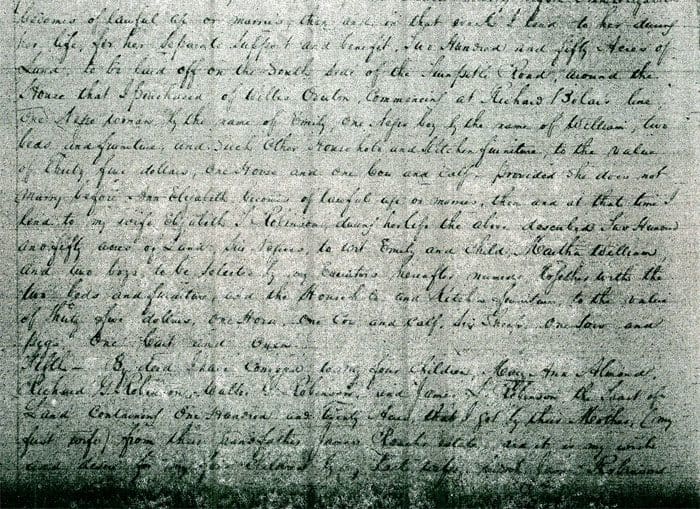 becomes of lawful age or marries, then and in that event I lend to her during
her life, for her separate support and benefit, Two Hundred and fifty Acres of
Land, to be laid off on the South side of the Road, around the
House that I purchased of Willis commencing at Richard line,
One Negro woman by the name of Emily, One Negro boy by the name of William, two
beds and furniture, and such other Household and Kitchen furniture, to the value
of thirty five dollars, One Horse and one Cow and calf, provided she does not
marry before Ann Elizabeth becomes of lawful age or marries, then and at that time I
lend to my wife Elizabeth Robinson, during her life the above described Two Hundred
and fifty acres of Land, Negroes, to wit Emily and child, Martha William
and two boys, to be selected by my Executors hereafter named, together with the
two beds and furniture, and the Household and Kitchen furniture, to the value
of thirty five dollars, One Horse, One Cow and calf, Six Sheep, One Sow and
pigs One Cart and Oxen
Fifth - By deed I have conveyed to my four children, Mary Ann Almond,
Richard G. Robinson, Walter Robinson, and James L. Robinson the tract of
Land containing One Hundred and twenty Acres, that I got by their Mother, (my
first wife) from their Grandfather James estate, and it is my wish
and desire for my four children by my wife, Robinson